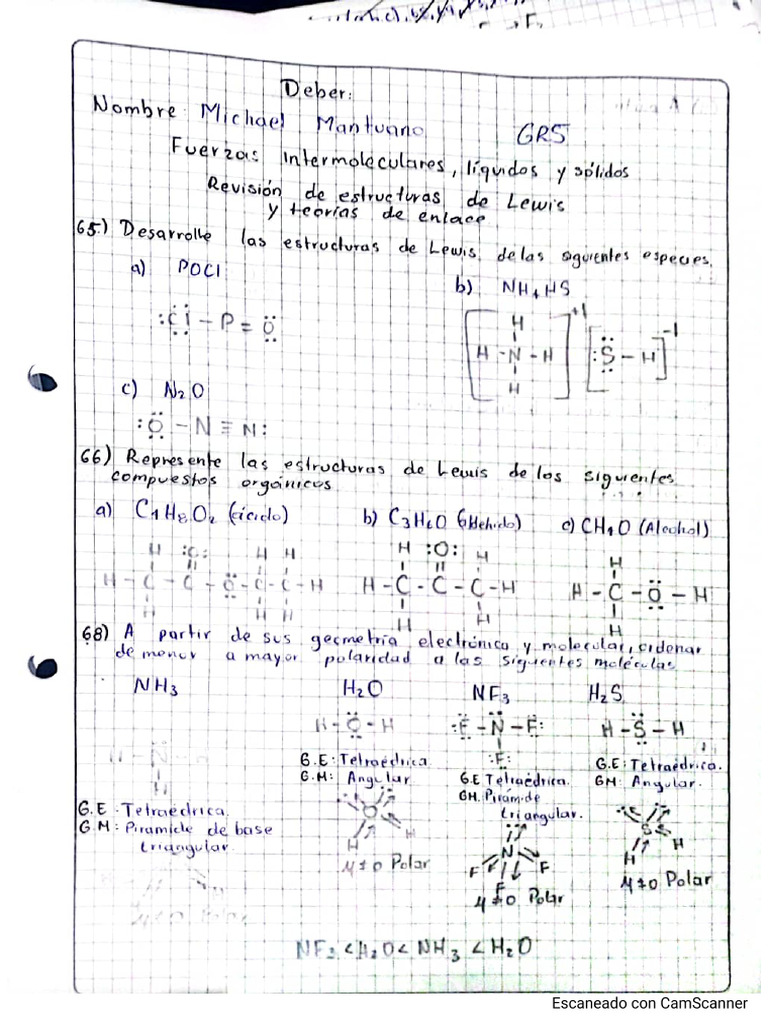 Deber:
Nombre Michael Mantuano GR5
Fuerzas intermoleculares, líquidos y sólidos
Revisión de estructuras de Lewis
y teorías de enlace
65.) Desarrolle las estructuras de Lewis de las siguientes especies.
a) POCl
b) NH4HS
:Cl - P = O
[H - N - H]+1 [:S - H]-1
c) N2O
:O - N ≡ N:
66) Represente las estructuras de Lewis de los siguientes
compuestos orgánicos
a) C4H8O2 (ácido) b) C3H6O c) CH4O (Alcohol)
H H :O: H H
H - C - C - O - C - C - H
H H H
H :O: H
H - C - C - C - H
H H
H
H - C - O - H
H
68) A partir de sus geometría electrónica y molecular, ordenar
de menor a mayor polaridad a las siguientes moléculas
NH3 H2O NF3 H2S
H - O - H :F - N - F: H - S - H
:F:
G.E: Tetraédrica
G.M: Angular
G.E Tetraédrica
GM. Pirámide
triangular.
G.E: Tetraédrica.
GM: Angular.
G.E: Tetraédrica
G.M: Piramide de base
triangular.
O
H H
μ≠0 Polar
N
F F F
μ≠0 Polar
S
H H
μ≠0 Polar
NF3 < H2O < NH3 < H2O
Escaneado con CamScanner